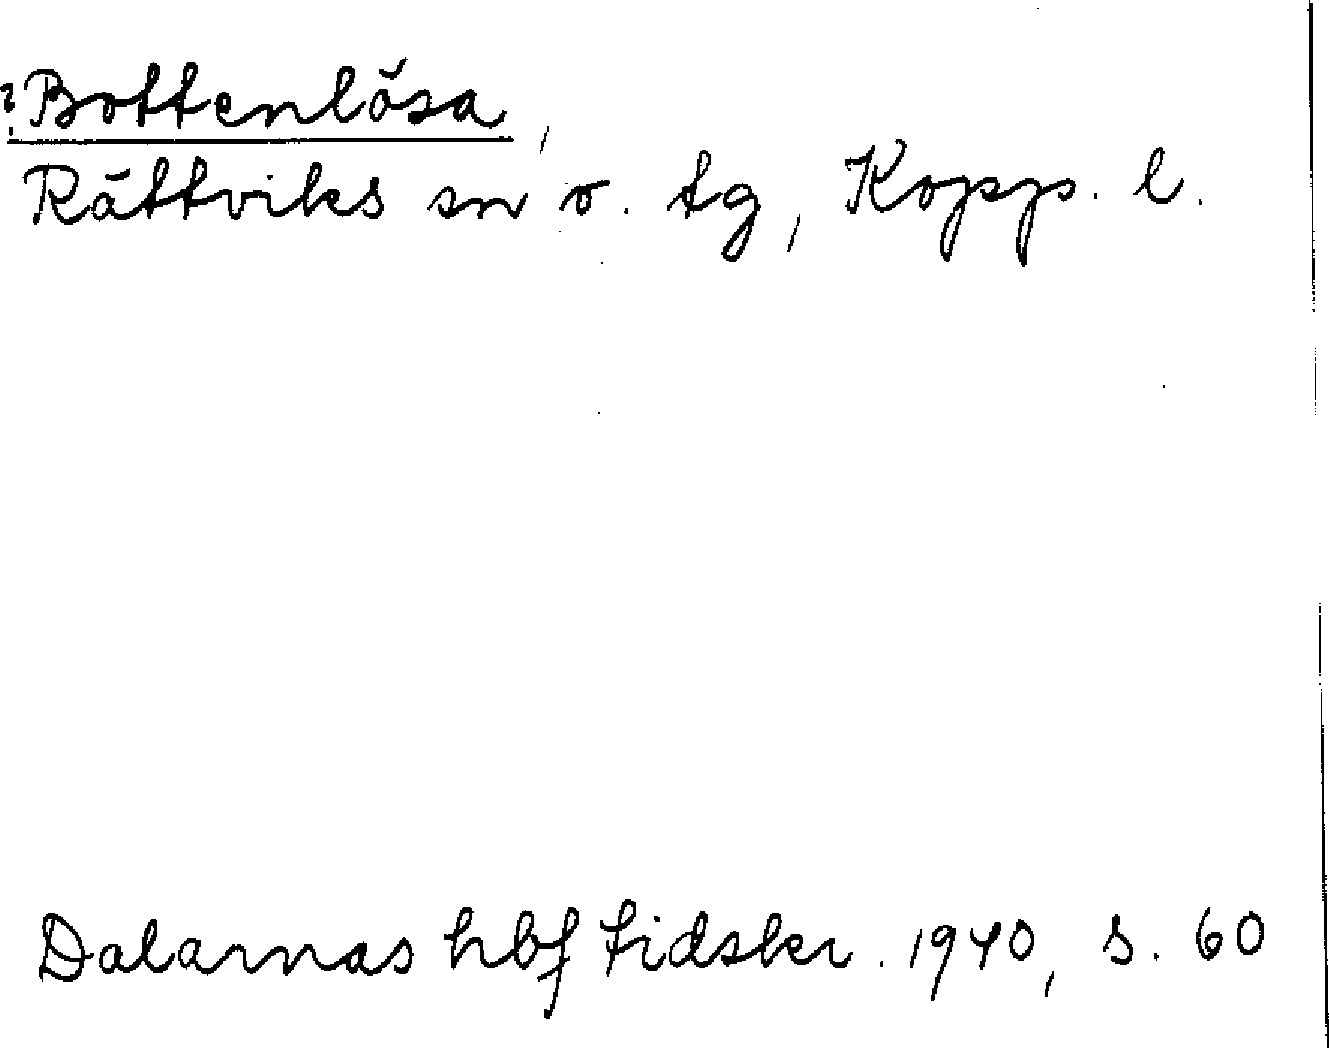 ? Bottenlösa,
Rättviks sn o. tg, Kopp. l.
Dalarnas hbf tidskr. 1940, s. 60